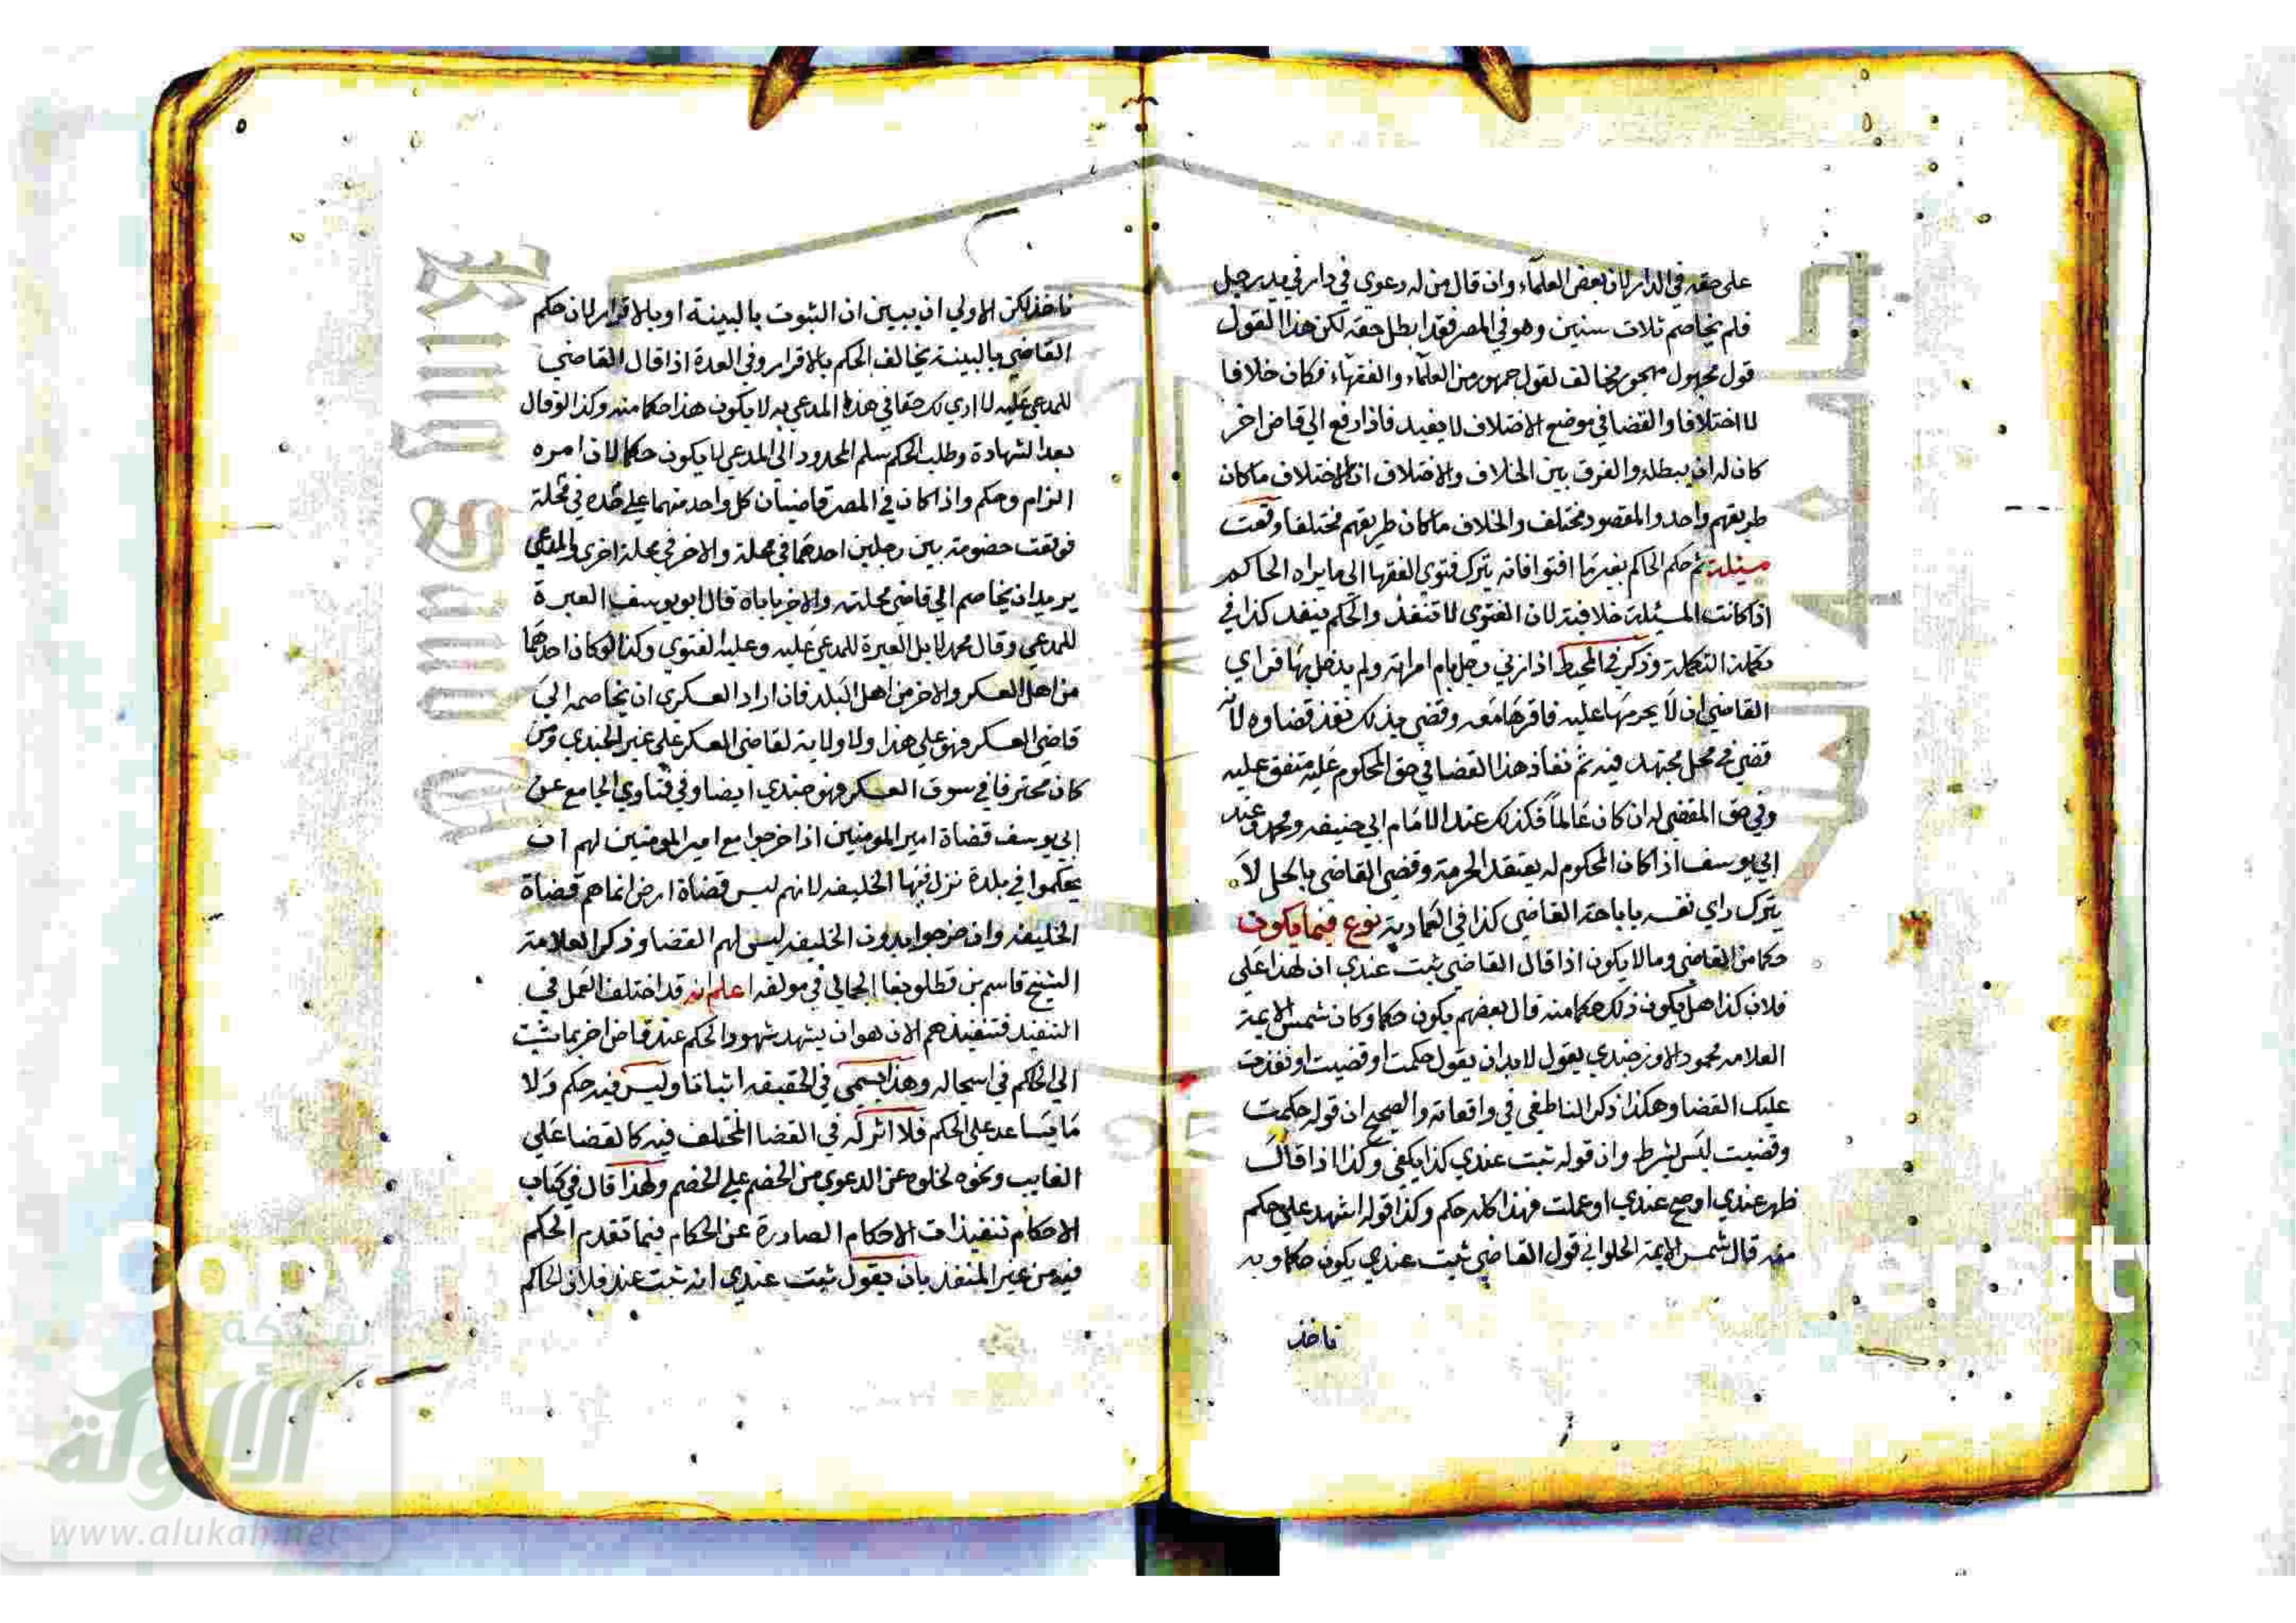 على حقه في الدار لان بعض العلماء وان قال من له دعوى في دار في يد رجل
فلم يخاصم ثلاث سنين وهو في المصر فقد ابطل حقه لكن هذا القول
قول مجهول مهجور مخالف لقول جمهور من العلماء والفقهاء فكان خلافا
لا اختلافا والقضا في موضع الاختلاف لا يفيد فاذا رفع الى قاض اخر
كان له ان يبطله والفرق بين الخلاف والاختلاف ان الاختلاف ما كان
طريقهم واحد والمقصود مختلف والخلاف ما كان طريقهم مختلفا وقعت
مسئلة ثم حكم الحاكم بغير ما افتوا فانه يترك فتوي الفقها الى ما يراه الحاكم
اذا كانت المسئلة خلافية لان الفتوي لا تنفذ والحكم ينفذ كذا في
تكملة التكملة وذكر في المحيط اذا زني رجل بام امراته ولم يدخل بها فراي
القاضي ان لا يحرمها عليه فاقرها معه وقضي بذلك نفذ قضاوه لانه
قضي في محل مجتهد فيه ثم نفاذ هذا القضا في حق المحكوم عليه متفق عليه
وفي حق المقضي له ان كان عالما فكذلك عند الامام ابي حنيفه ومحمد وعند
ابي يوسف اذا كان المحكوم له يعتقد الحرمة وقضي القاضي بالحل لا
يترك راي نفسه باباحة القاضي كذا في العمادية نوع فيما يكون
حكما من القاضي وما لا يكون اذا قال القاضي ثبت عندي ان لهذا على
فلان كذا هل يكون ذلك حكما منه قال بعضهم يكون حكما وكان شمس الايمة
العلامه محمود الاوزجندي يقول لا بد ان يقول حكمت او قضيت او نفذت
عليك القضا وهكذا ذكر الناطفي في واقعاته والصحيح ان قوله حكمت
وقضيت ليس بشرط وان قوله ثبت عندي كذا يكفي وكذا اذا قال
ظهر عندي او صح عندي او علمت فهذا كله حكم وكذا قوله اشهد علي حكم
منه قال شمس الايمة الحلواني قول القاضي ثبت عندي يكون حكما وبه
ناخذ
ناخذ لكن الاولي ان يبين ان الثبوت بالبينة او بالاقرار لان حكم
القاضي بالبينة يخالف الحكم بالاقرار وفي العدة اذا قال القاضي
للمدعي عليه لا اري لك حقا في هذا المدعي به لا يكون هذا حكما منه وكذا لو قال
بعد الشهادة وطلب الحكم سلم المحدود الى المدعي لا يكون حكما لان امره
الزام وحكم واذا كان في المصر قاضيان كل واحد منهما علي حده في محلة
فوقعت خصومة بين رجلين احدهما في محلة والاخر في محلة اخرى والمدعي
يريد ان يخاصم الي قاضي محلته والاخر ياباه قال ابو يوسف العبرة
للمدعي وقال محمد لا بل العبرة للمدعي عليه وعليه الفتوي وكذا لو كان احدهما
من اهل العسكر والاخر من اهل البلد فان اراد العسكري ان يخاصمه الى
قاضي العسكر فهو علي هذا ولا ولاية لقاضي العسكر علي غير الجندي ومن
كان محترفا في سوق العسكر فهو جندي ايضا وفي فتاوي الجامع عن
ابي يوسف قضاة امير المومنين اذا خرجوا مع امير المومنين لهم ان
يحكموا في بلدة نزل فيها الخليفه لانهم ليس قضاة ارض انما هم قضاة
الخليفه وان خرجوا بدون الخليفه ليس لهم القضا وذكر العلامة
الشيخ قاسم بن قطلوبغا الجمالي في مولفه اعلم انه قد اختلف العمل في
التنفيذ فتنفيذهم الان هو ان يشهد شهود الحكم عند قاض اخر بما ثبت
الي الحاكم في اسجاله وهذا يسمي في الحقيقه اثباتا وليس فيه حكم ولا
ما يساعد على الحكم فلا اثر له في القضا المختلف فيه كالقضا على
الغايب ونحوه لخلوه عن الدعوي من الخصم علي الخصم ولهذا قال في كتاب
الاحكام تنفيذات الاحكام الصادرة عن الحكام فيما تقدم الحكم
فيه من غير المنفذ بان يقول ثبت عندي انه ثبت عند فلان الحاكم
شبكة
الألوكة
www.alukah.net